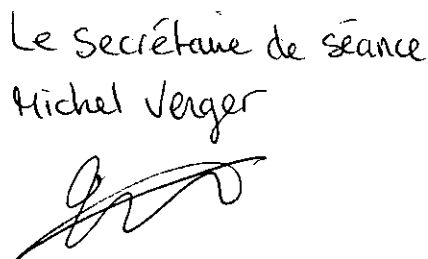 Le Secrétaire de séance
Michel Verger